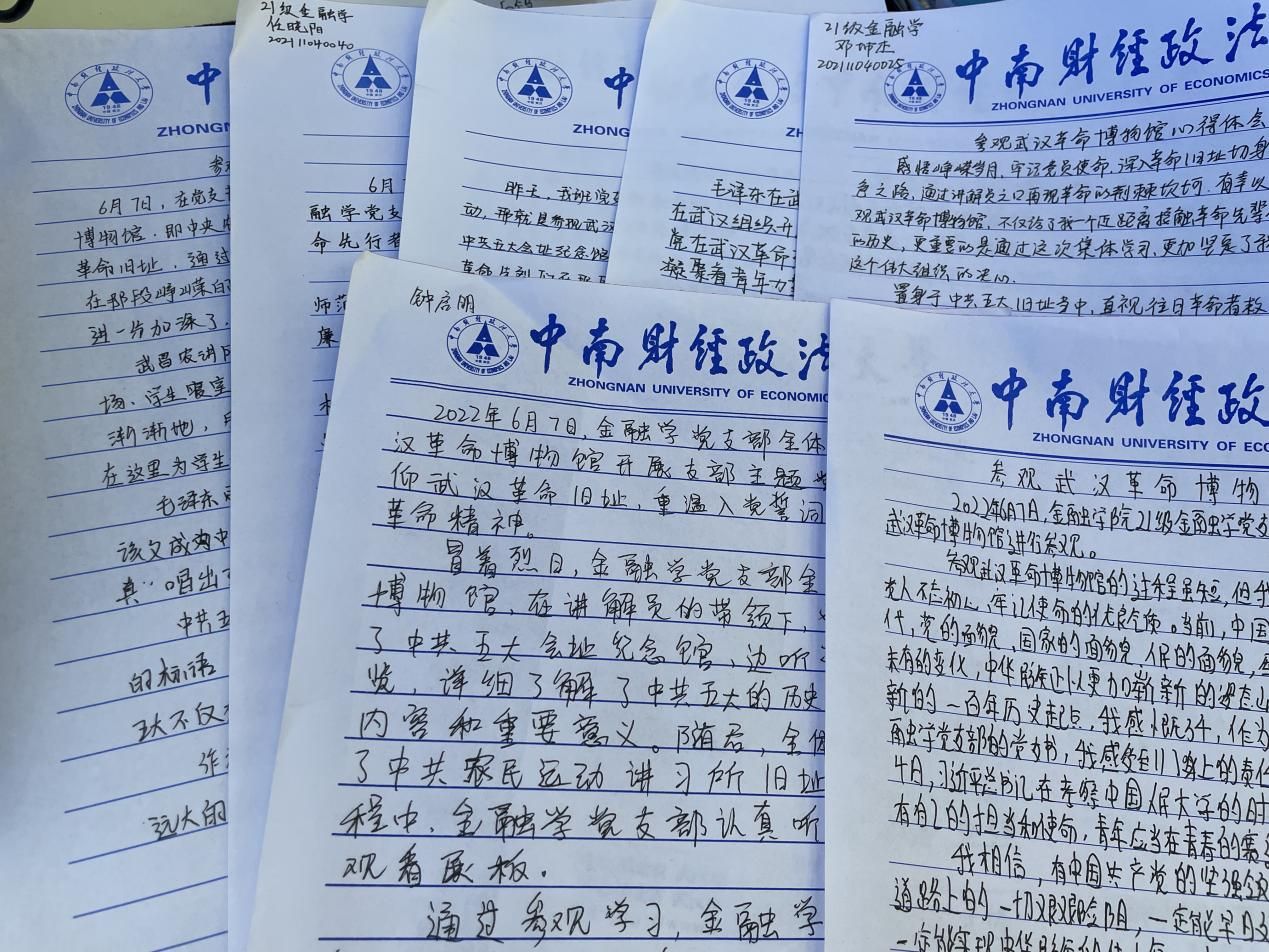 中
ZHONGN
参
6月7日，在党支
博物馆，即中央
革命旧址，通过
在那段峥嵘
进一步加深了
武昌农讲
场、学生寝室
渐渐地，
在这里为学生
毛泽东
该文成为中
真"唱出
中共五
的标语
五大不仅
作
远大的
21级金融学
任晓阳
202111040040
6月
融学党支
命先行者
师范
廉
中
ZHONG
昨天，我班党
动，那就是参观武汉
中共五大会址纪念馆
中
ZHON
毛泽东在武
在武汉组织开
党在武汉革命
凝聚着青年力
21级金融学
邓坤杰
202111040025
中南财经政法
ZHONGNAN UNIVERSITY OF ECONOMICS
参观武汉革命博物馆心得体会
感悟峥嵘岁月，牢记党员使命，深入革命旧址切身
争之路，通过讲解员之口再现革命的荆棘坎坷。有幸以
观武汉革命博物馆，不仅给了我一个近距离接触革命先辈
的历史，更重要的是通过这次集体学习，更加坚定了我
这个伟大组织的决心。
置身于中共五大旧址当中，直视往日革命者
钟启明
中南财经政法
ZHONGNAN UNIVERSITY OF ECONOMIC
2022年6月7日，金融学党支部全体
汉革命博物馆开展支部主题
仰武汉革命旧址，重温入党誓词
革命精神。
冒着烈日，金融学党支部全
博物馆，在讲解员的带领下，
了中共五大会址纪念馆，边听
览，详细了解了中共五大的历史
内容和重要意义。随后，全体
了中共农民运动讲习所旧址
程中，金融学党支部认真听
观看展板。
通过参观学习，金融学
中南财经政
ZHONGNAN UNIVERSITY OF ECO
参观武汉革命博物
2022年6月7日，金融学院21级金融学党支
武汉革命博物馆进行参观。
参观武汉革命博物馆的过程虽短，但
党人不忘初心，牢记使命的优良品质。当前，中国
代，党的面貌，国家的面貌，人民的面貌，
未有的变化，中华民族正以更加崭新的姿态
新的一百年历史起点，我感慨万千，作为
融学党支部的党支书，我感受到了肩上的责任
4月，习近平总书记在考察中国人民大学的时
有自己的担当和使命，青年应当在青春的赛
我相信，有中国共产党的坚强领
道路上的一切艰难险阻，一定能早日
一定能实现中华民族的伟大